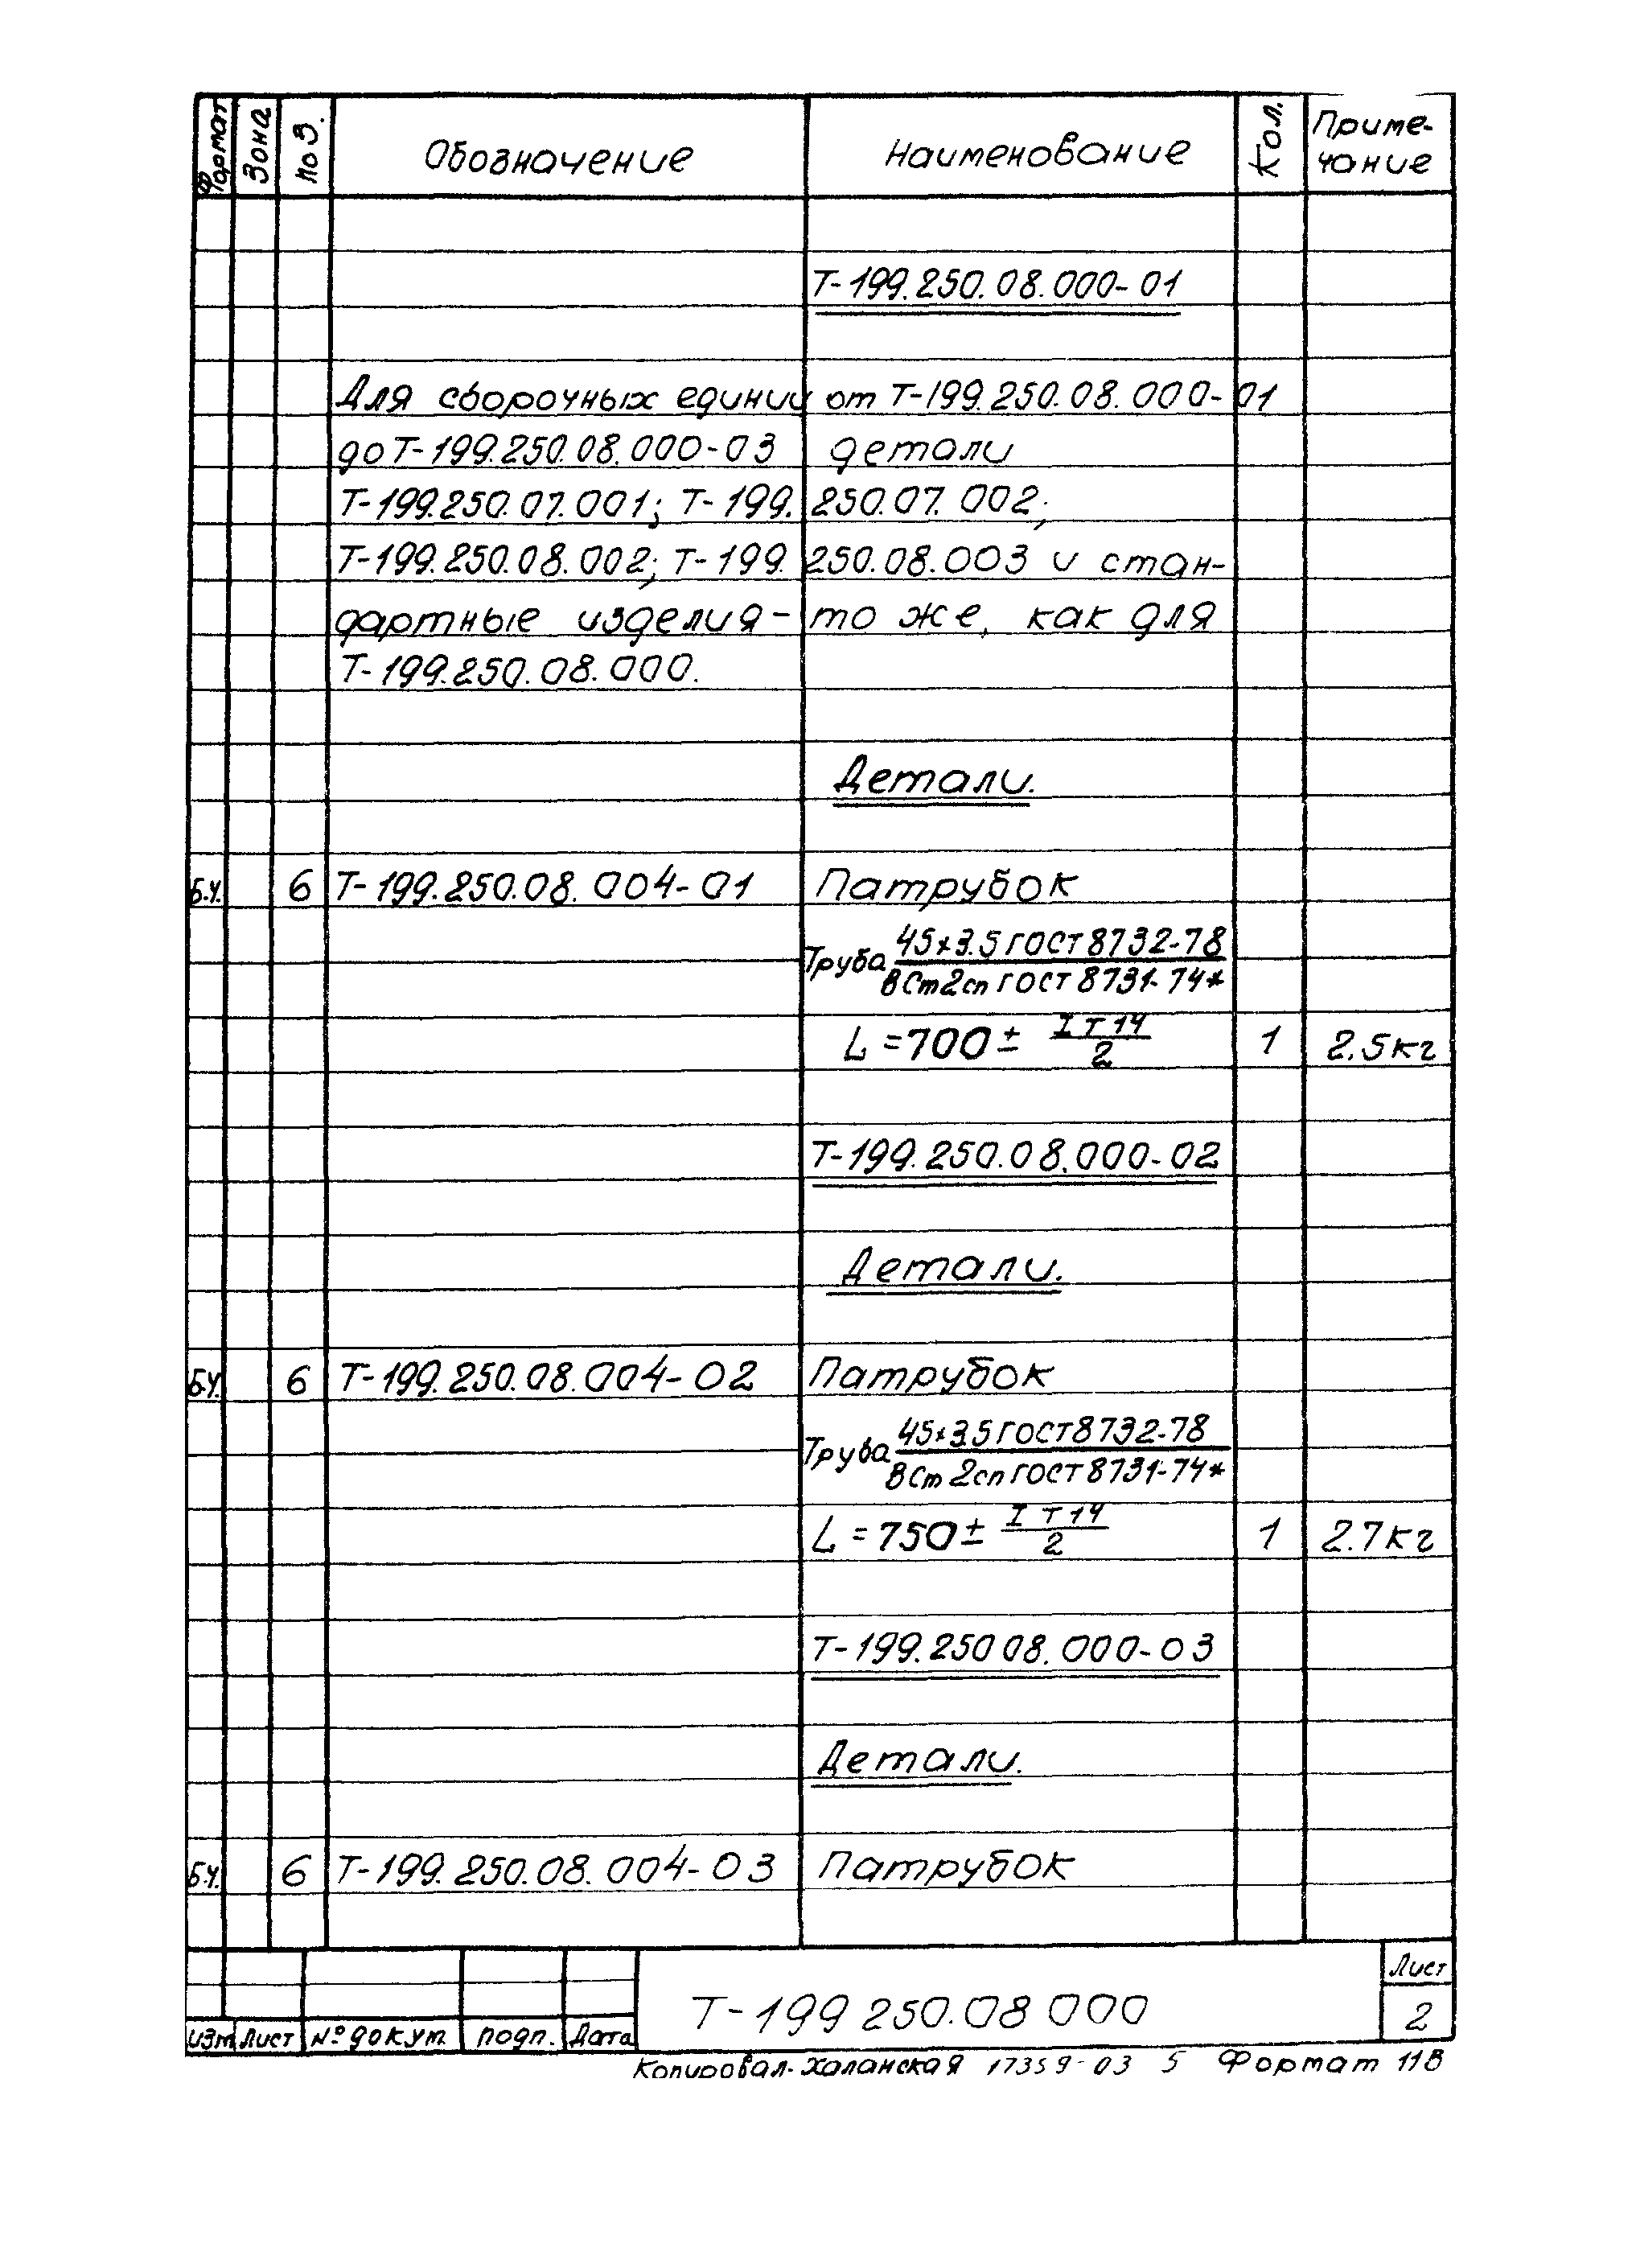 Формат Зона Поз. Обозначение Наименование Кол. Приме-
чание
Т-199.250.08.000-01
Для сборочных единиц от Т-199.250.08.000-01
до Т-199.250.08.000-03 детали
Т-199.250.07.001; Т-199.250.07.002;
Т-199.250.08.002; Т-199.250.08.003 и стан-
дартные изделия- то же, как для
Т-199.250.08.000.
Детали.
Б.Ч. 6 Т-199.250.08.004-01 Патрубок
Труба 45х3.5 ГОСТ 8732-78
ВСт2сп ГОСТ 8731-74*
L = 700 ± IТ14/2 1 2.5кг
Т-199.250.08.000-02
Детали.
Б.Ч. 6 Т-199.250.08.004-02 Патрубок
Труба 45х3.5 ГОСТ 8732-78
ВСт2сп ГОСТ 8731-74*
L = 750 ± IТ14/2 1 2.7кг
Т-199.250 08.000-03
Детали.
Б.Ч. 6 Т-199.250.08.004-03 Патрубок
Т-199 250.08 000
Лист
2
Изм Лист № докум подп. Дата
Копировал-Халанская 17359-03 5 Формат 11В